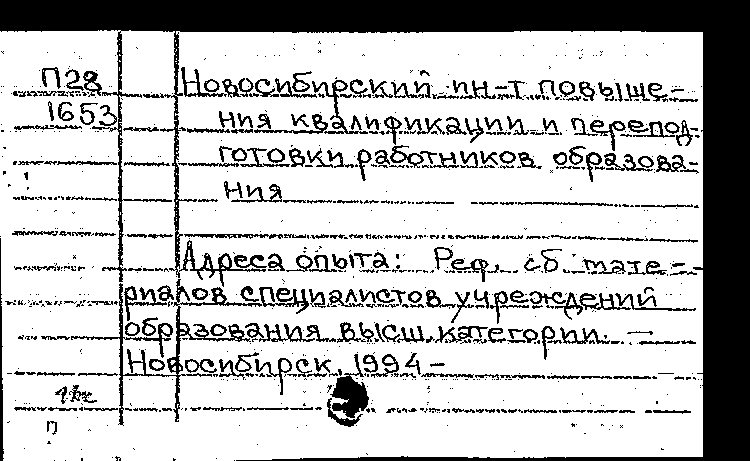 П28 Новосибирский ин-т повыше-
1653 ния квалификации и перепод-
готовки работников образова-
ния
Адреса опыта: Реф. сб. мате-
риалов специалистов учреждений
образования высш. категории. —
Новосибирск, 1994 –
п